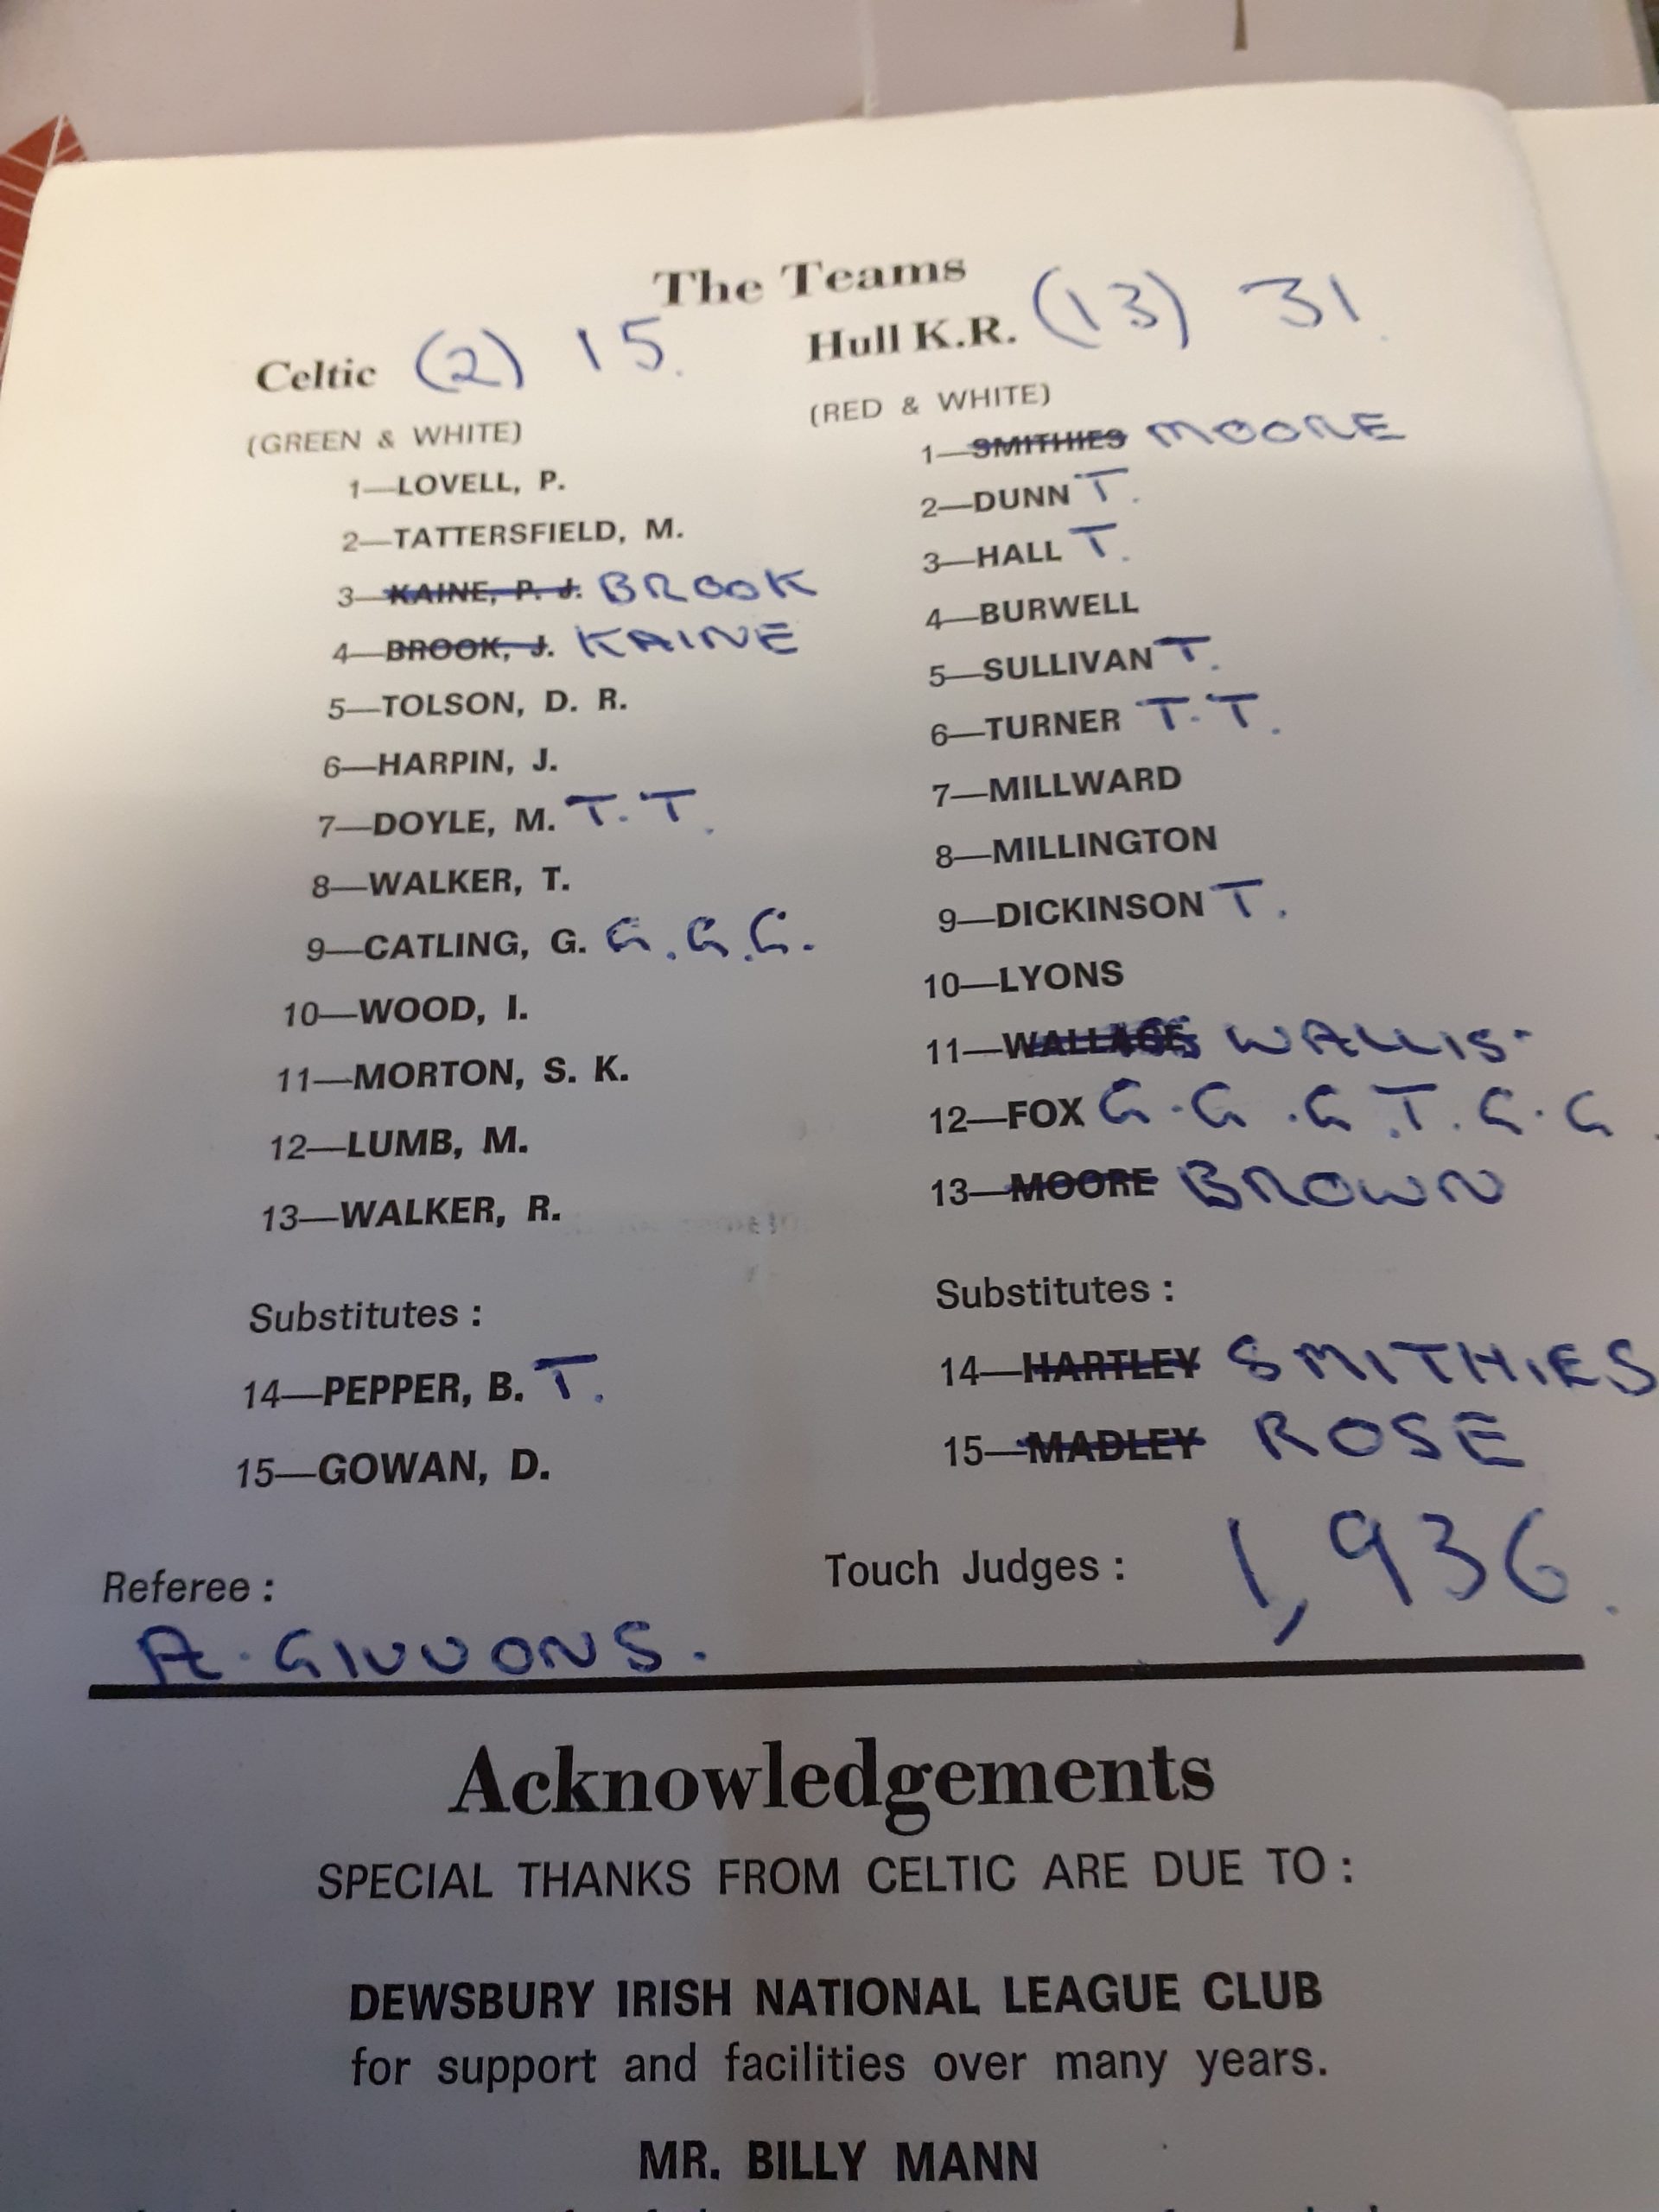 The Teams
Celtic (2) 15.
(GREEN & WHITE)
1—LOVELL, P.
2—TATTERSFIELD, M.
3—KAINE, P. J. BROOK
4—BROOK, J. KAINE
5—TOLSON, D. R.
6—HARPIN, J.
7—DOYLE, M. T. T.
8—WALKER, T.
9—CATLING, G. G. G. G.
10—WOOD, I.
11—MORTON, S. K.
12—LUMB, M.
13—WALKER, R.
Substitutes :
14—PEPPER, B. T.
15—GOWAN, D.
Hull K.R. (13) 31.
(RED & WHITE)
1—SMITHIES MOORE
2—DUNN T.
3—HALL T.
4—BURWELL
5—SULLIVAN T.
6—TURNER T. T.
7—MILLWARD
8—MILLINGTON
9—DICKINSON T.
10—LYONS
11—WALLACE WALLIS.
12—FOX G. G. G. T. G. G.
13—MOORE BROWN
Substitutes :
14—HARTLEY SMITHIES
15—MADLEY ROSE
Referee :
A. GIVVONS.
Touch Judges : 1,936.
Acknowledgements
SPECIAL THANKS FROM CELTIC ARE DUE TO :
DEWSBURY IRISH NATIONAL LEAGUE CLUB
for support and facilities over many years.
MR. BILLY MANN